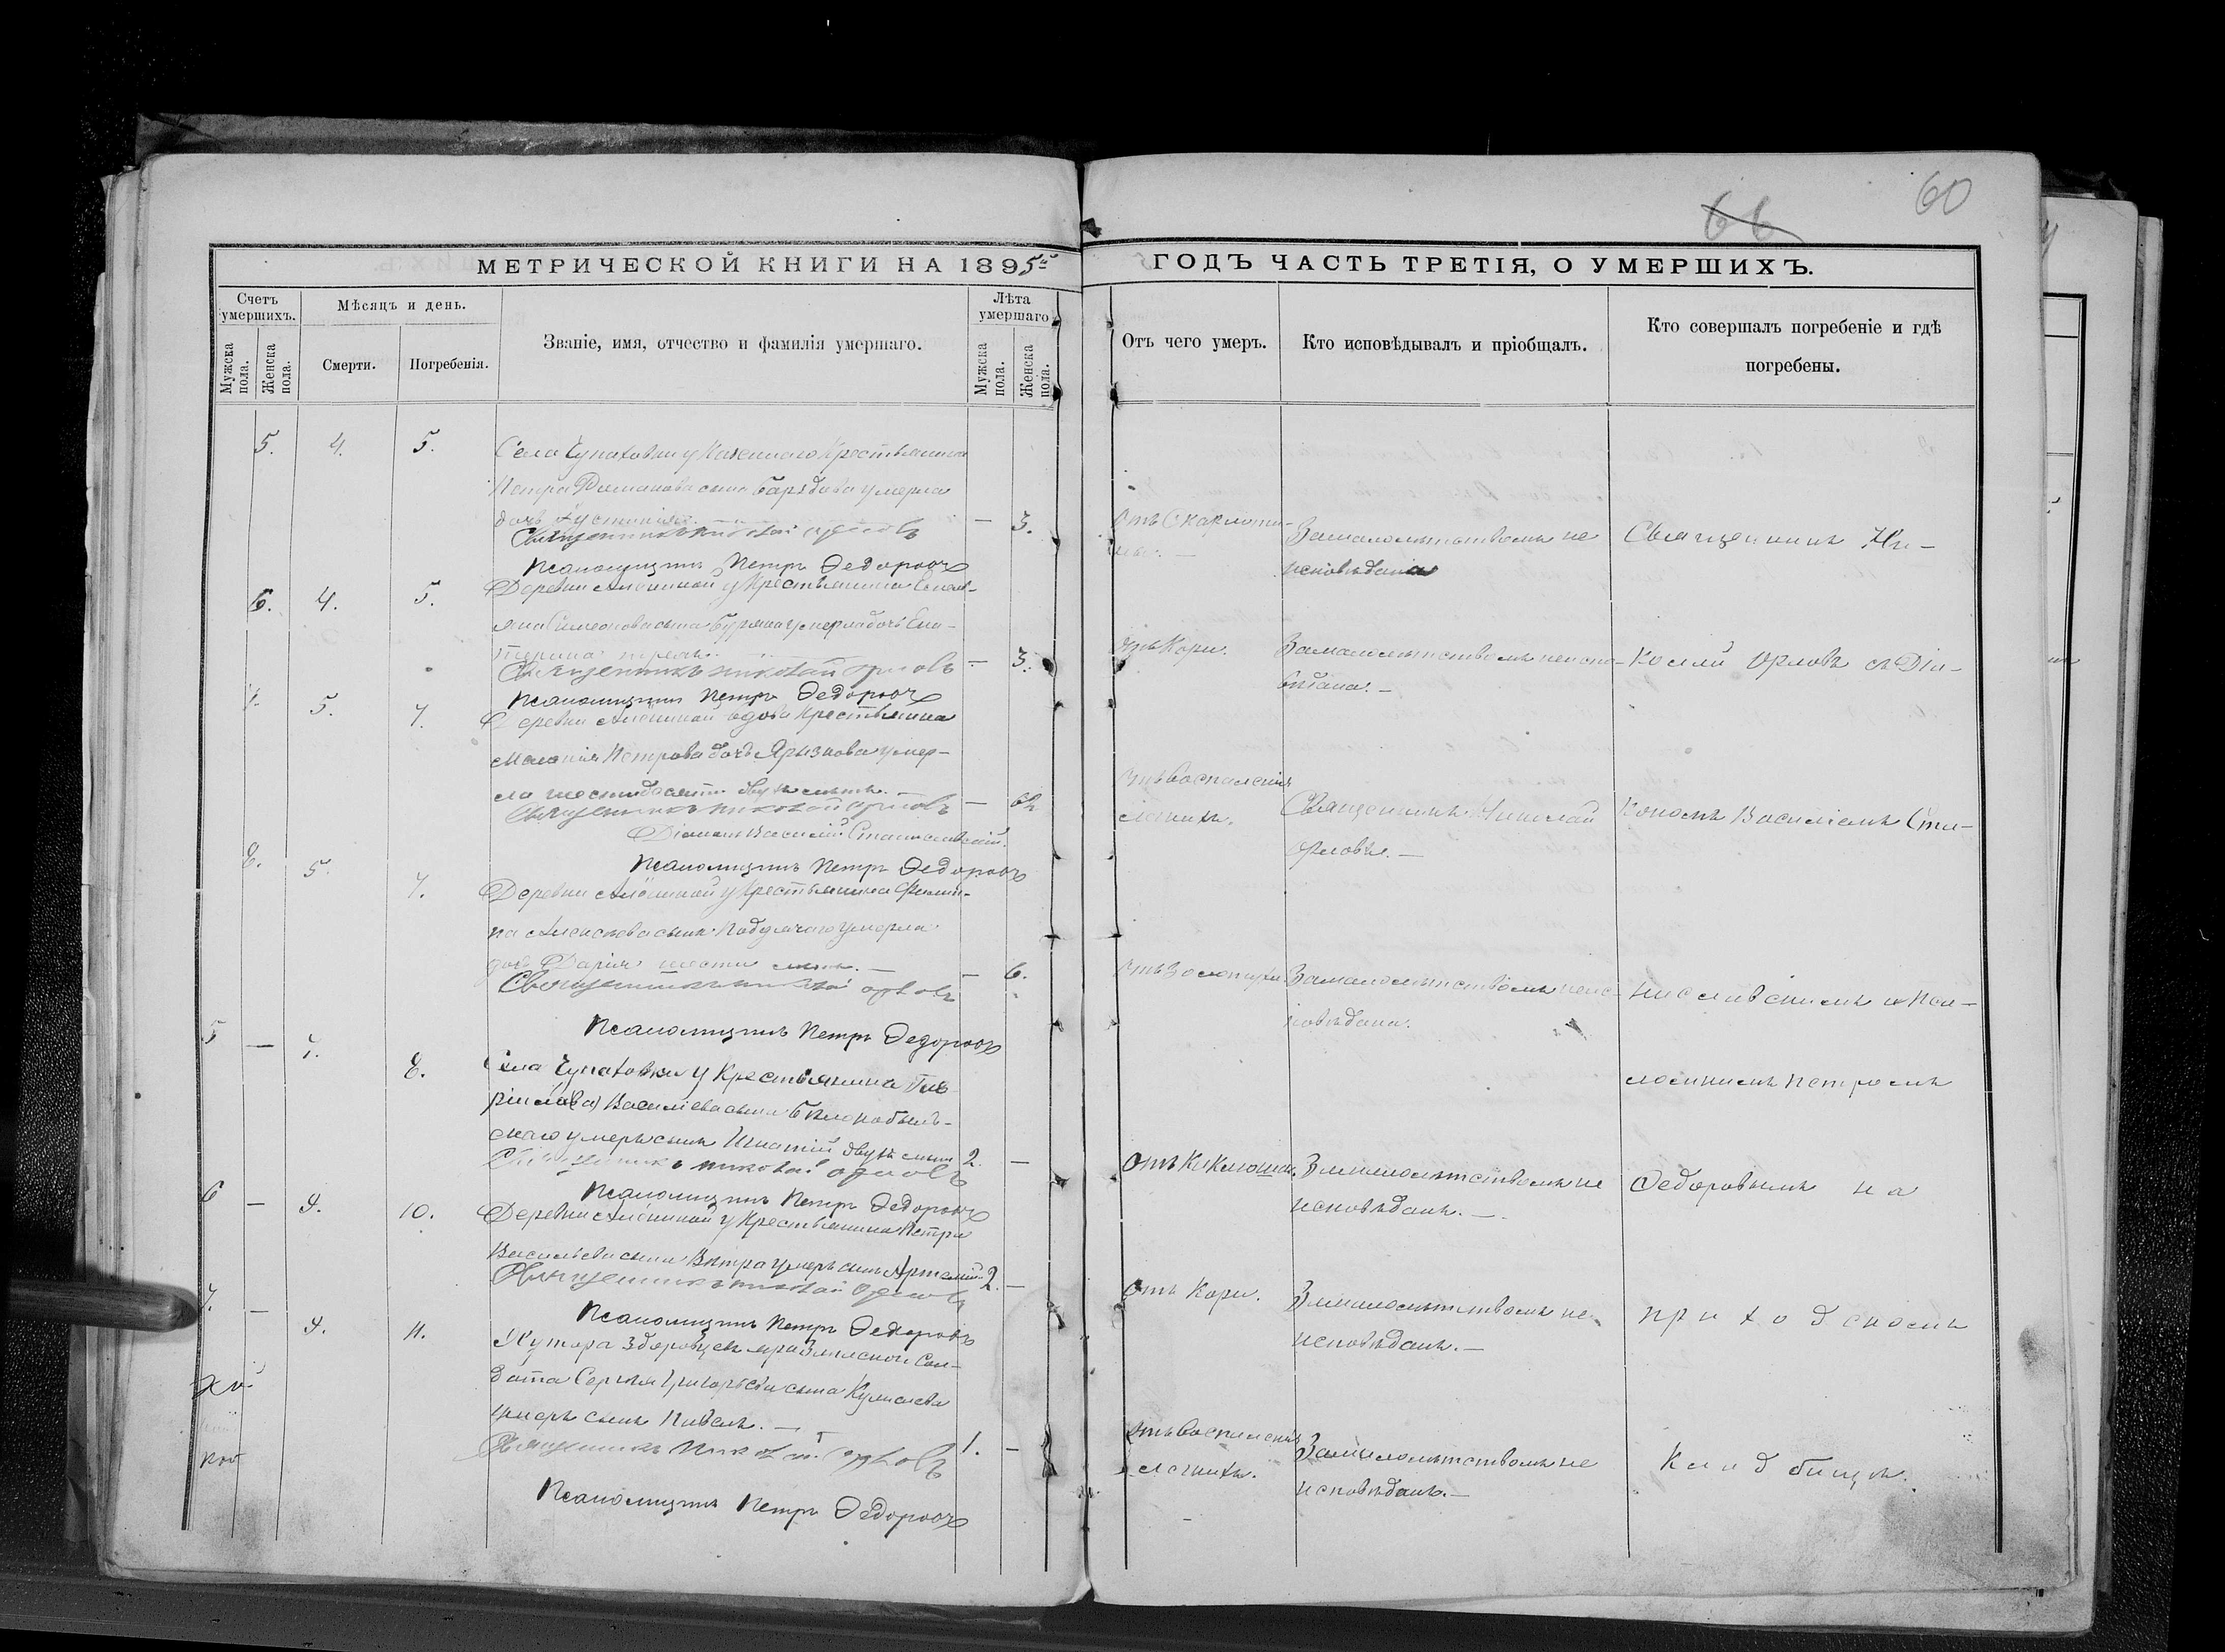 66
60
МЕТРИЧЕСКОЙ КНИГИ НА 1895й
ГОДЪ ЧАСТЬ ТРЕТІЯ, О УМЕРШИХЪ.
Счетъ умершихъ.
Мужска пола.
Женска пола.
Мѣсяцъ и день.
Смерти.
Погребенія.
Званіе, имя, отчество и фамилія умершаго.
Лѣта умершаго
Мужска пола.
Женска пола.
Отъ чего умеръ.
Кто исповѣдывалъ и пріобщалъ.
Кто совершалъ погребеніе и гдѣ погребены.
5. 4. 5.
Села Чупаховки у Крестьянина
Петра Романова сына умерла
дочь — 3.
Священникъ Николай Орловъ
Псаломщикъ Петръ Федоровъ
Отъ Скарлати-
ны. —
Замалолѣтствомъ не
исповѣдана
Священникъ Ни-
6. 4. 5.
Деревни Алёшиной у Крестьянина Емель-
яна Симеонова сына умерла дочь Ека-
терина — 3.
Священникъ Николай Орловъ
Псаломщикъ Петръ Федоровъ
Отъ Кори.
Замалолѣтствомъ неиспо-
вѣдана. —
колай Орловъ съ Діа-
7. 5. 7.
Деревни Алёшиной вдова Крестьянина
Меланія Петрова дочь умер-
ла шестидесяти двухъ лѣтъ. — 62
Священникъ Николай Орловъ
Діаконъ Василій Станиславскій.
Псаломщикъ Петръ Федоровъ
Отъ Воспаленія
легкихъ.
Священникъ Николай
Орловъ. —
кономъ Василіемъ Ста-
8. 5. 7.
Деревни Алёшиной у Крестьянина Филип-
па Алексѣева сына умерла
дочь Дарія шести лѣтъ. — 6.
Священникъ Николай Орловъ
Псаломщикъ Петръ Федоровъ
Отъ Золотухи
Замалолѣтствомъ неис-
повѣдана.
ниславскимъ и Пса-
ломщикомъ Петромъ
5 — 7. 8.
Села Чупаховки у Крестьянина Гав-
ріила Василіева сына
умеръ сынъ Игнатій двухъ лѣтъ 2. —
Священникъ Николай Орловъ
Псаломщикъ Петръ Федоровъ
Отъ Коклюша.
Замалолѣтствомъ не
исповѣданъ. —
Федоровымъ на
6 — 9. 10.
Деревни Алёшиной у Крестьянина Петра
Васильева сына Вѣтра умеръ сынъ Артемій 2. —
Священникъ Николай Орловъ
Псаломщикъ Петръ Федоровъ
Отъ Кори.
Замалолѣтствомъ не
исповѣданъ. —
приходскомъ
7. — 9. 11.
Хутора у Сол-
дата Сергѣя Григорьева сына
умеръ сынъ Павелъ. — 1. —
Священникъ Николай Орловъ
Псаломщикъ Петръ Федоровъ
Отъ Воспаленія
легкихъ.
Замалолѣтствомъ не
исповѣданъ. —
Кладбищѣ.